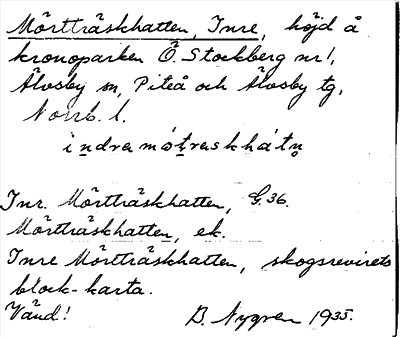 Mörtträskhatten, Inre, höjd å
kronoparken Ö. Stockberg nr 1,
Älvsby sn, Piteå och Älvsby tg,
Norrb. l.
indra mö́traskhátn̥
Inr. Mörtträskhatten, G. 36.
Mörtträskhatten, ek.
Inre Mörtträskhatten, skogsrevirets
block-karta.
Vänd! B. Nygren 1935.